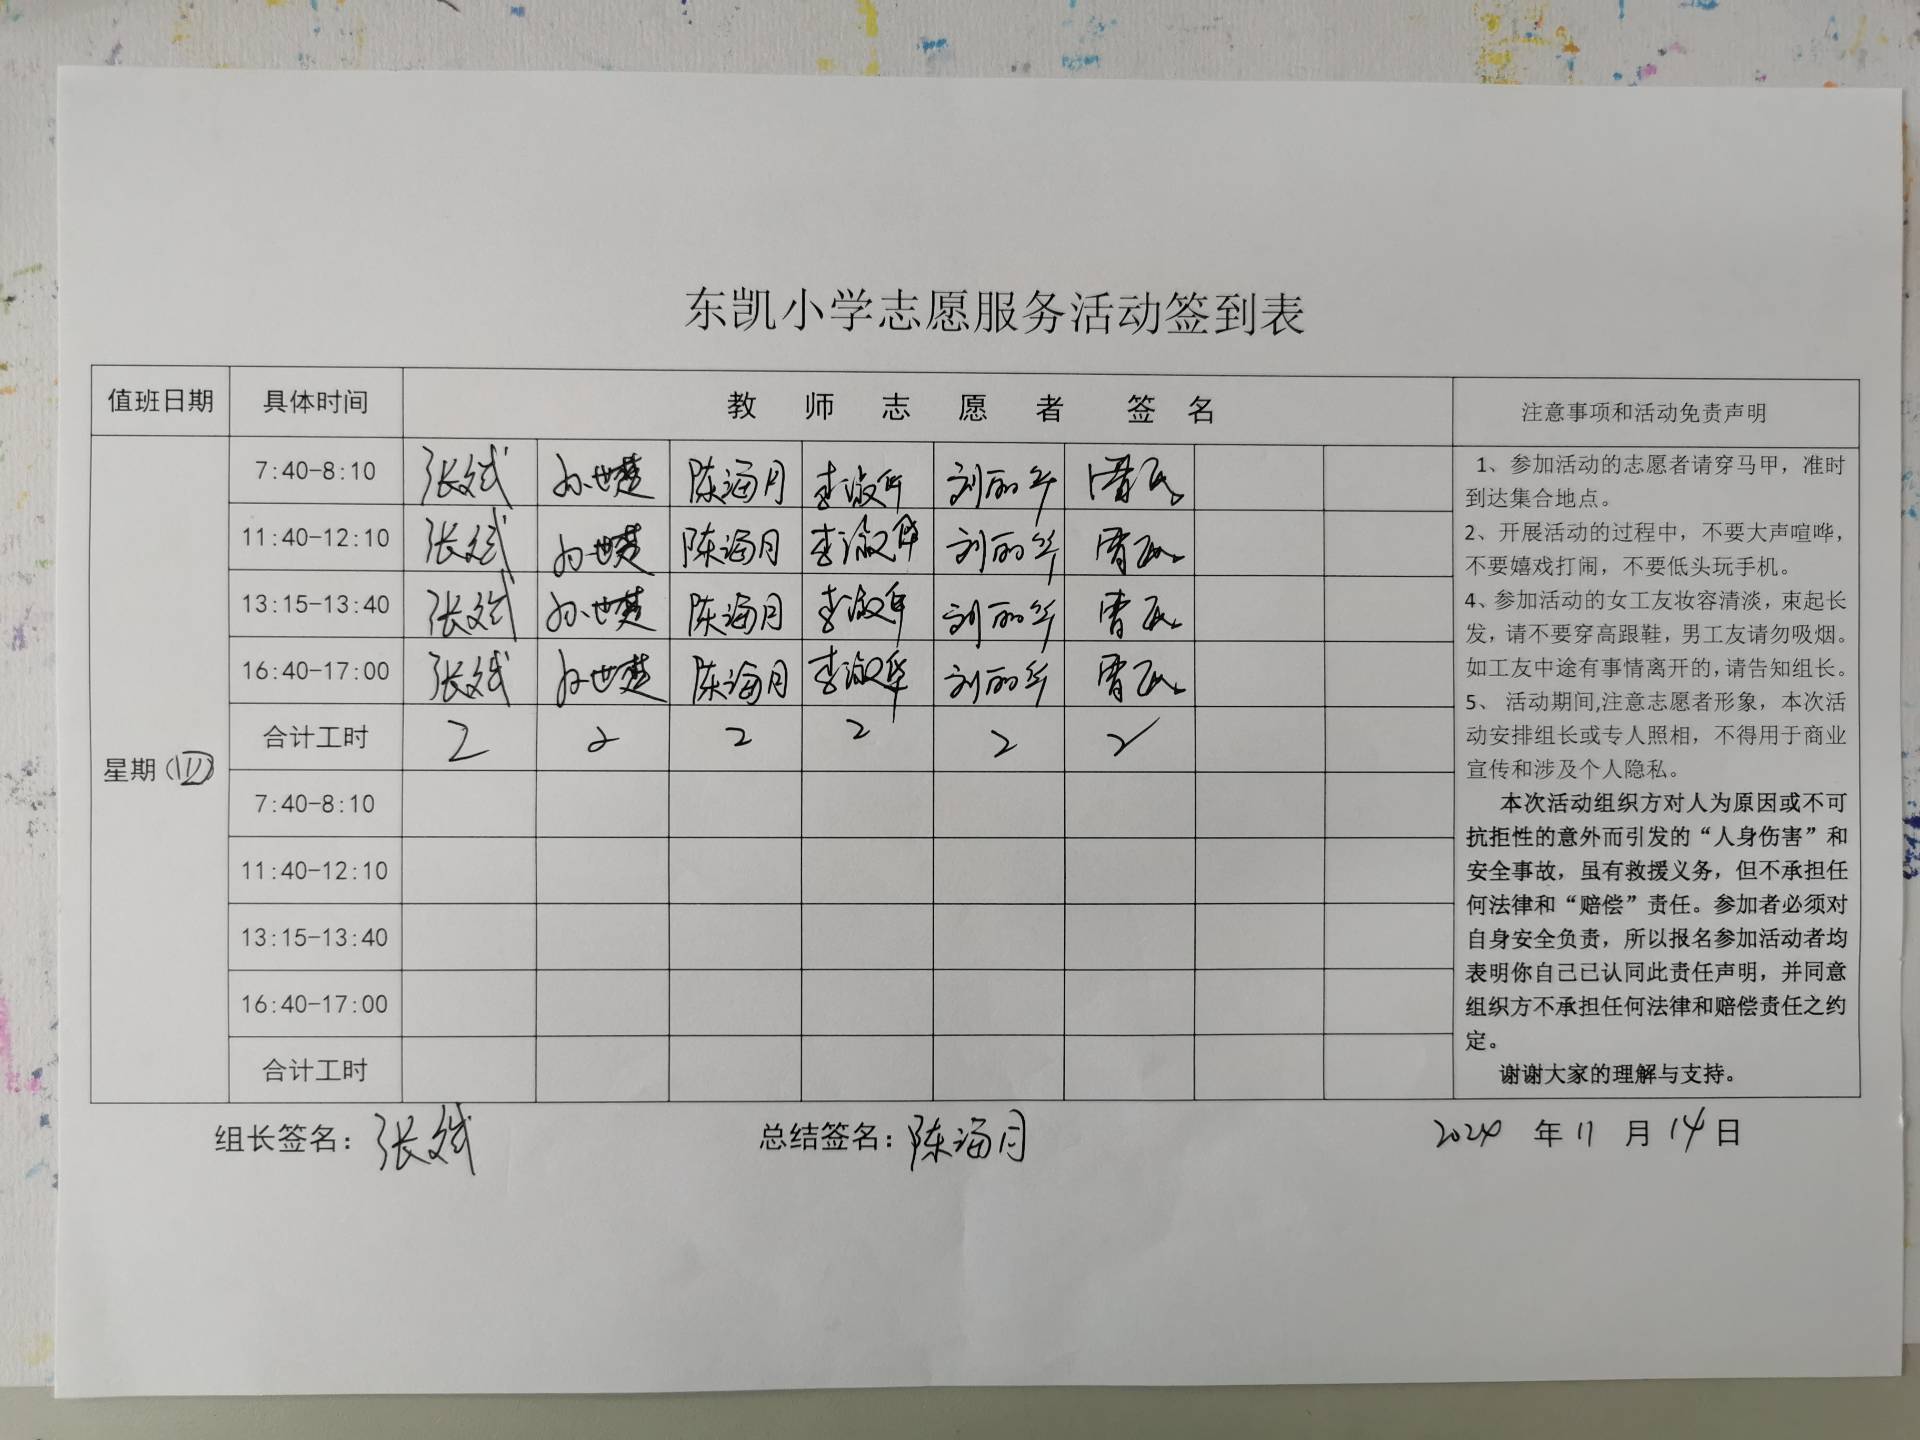 东凯小学志愿服务活动签到表
值班日期 具体时间 教师志愿者签名 注意事项和活动免责声明
星期(四)
7:40-8:10 张斌 孙世楚 陈海月 李淑华 刘丽华
11:40-12:10 张斌 孙世楚 陈海月 李淑华 刘丽华
13:15-13:40 张斌 孙世楚 陈海月 李淑华 刘丽华
16:40-17:00 张斌 孙世楚 陈海月 李淑华 刘丽华
合计工时 2 2 2 2 2 2
7:40-8:10
11:40-12:10
13:15-13:40
16:40-17:00
合计工时
1、参加活动的志愿者请穿马甲，准时
到达集合地点。
2、开展活动的过程中，不要大声喧哗，
不要嬉戏打闹，不要低头玩手机。
4、参加活动的女工友妆容清淡，束起长
发，请不要穿高跟鞋，男工友请勿吸烟。
如工友中途有事情离开的，请告知组长。
5、 活动期间,注意志愿者形象，本次活
动安排组长或专人照相，不得用于商业
宣传和涉及个人隐私。
本次活动组织方对人为原因或不可
抗拒性的意外而引发的“人身伤害”和
安全事故，虽有救援义务，但不承担任
何法律和“赔偿”责任。参加者必须对
自身安全负责，所以报名参加活动者均
表明你自己已认同此责任声明，并同意
组织方不承担任何法律和赔偿责任之约
定。
谢谢大家的理解与支持。
组长签名：张斌 总结签名：陈海月 2024 年 11 月 14 日